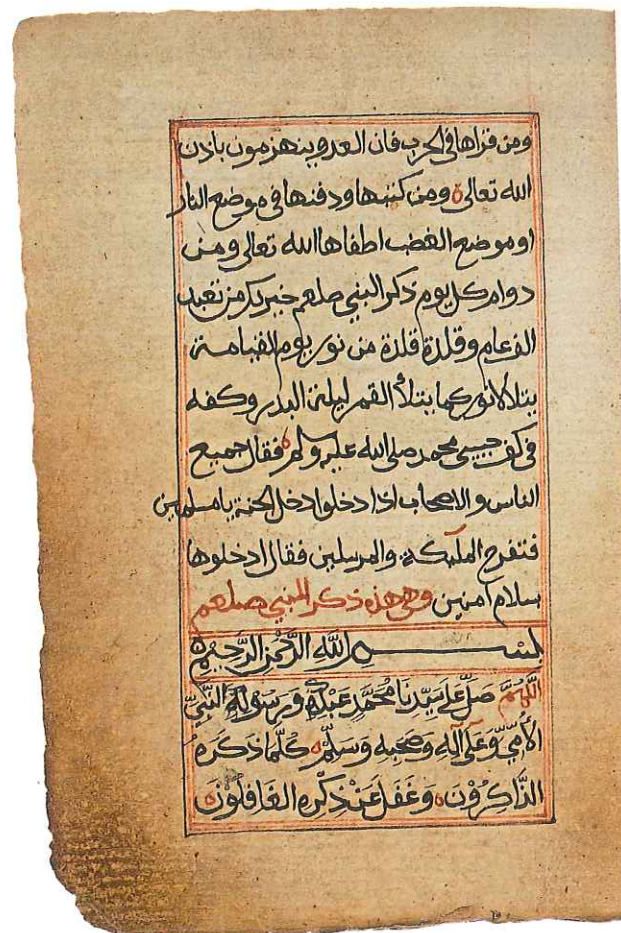 ومن قراها في الحرب فان العدو ينهزمون باذن
الله تعالى ومن كتبها ودفنها في موضع النار
او موضع الغضب اطفاها الله تعالى ومن
دوام كل يوم ذكر النبي صلعم خير لك من تعبد
الف عام وقلدة قلدة من نور يوم القيامة
يتلالا نور كما يتلأ القمر ليلة البدر وكفه
في كف حبيبي محمد صلى الله عليه وسلم فقال جميع
الناس والاصحاب اذا دخلوا دخل الجنة يا مسلمين
فتفرح الملىكة والمرسلين فقال ادخلوها
بسلام امنين وهي هذه ذكر النبي صلعم
بسم الله الرحمن الرحيم
اللَّهُمَّ صَلِّ عَلَى سَيِّدِنَا مُحَمَّدٍ عَبْدِكَ وَرَسُولِكَ النَّبِيِّ
الأُمِّيِّ وَعَلَى آلِهِ وَصَحْبِهِ وَسَلِّمْ كُلَّمَا ذَكَرَهُ
الذَّاكِرُوْنَ وَغَفَلَ عَنْ ذِكْرِهِ الغَافِلُوْنَ